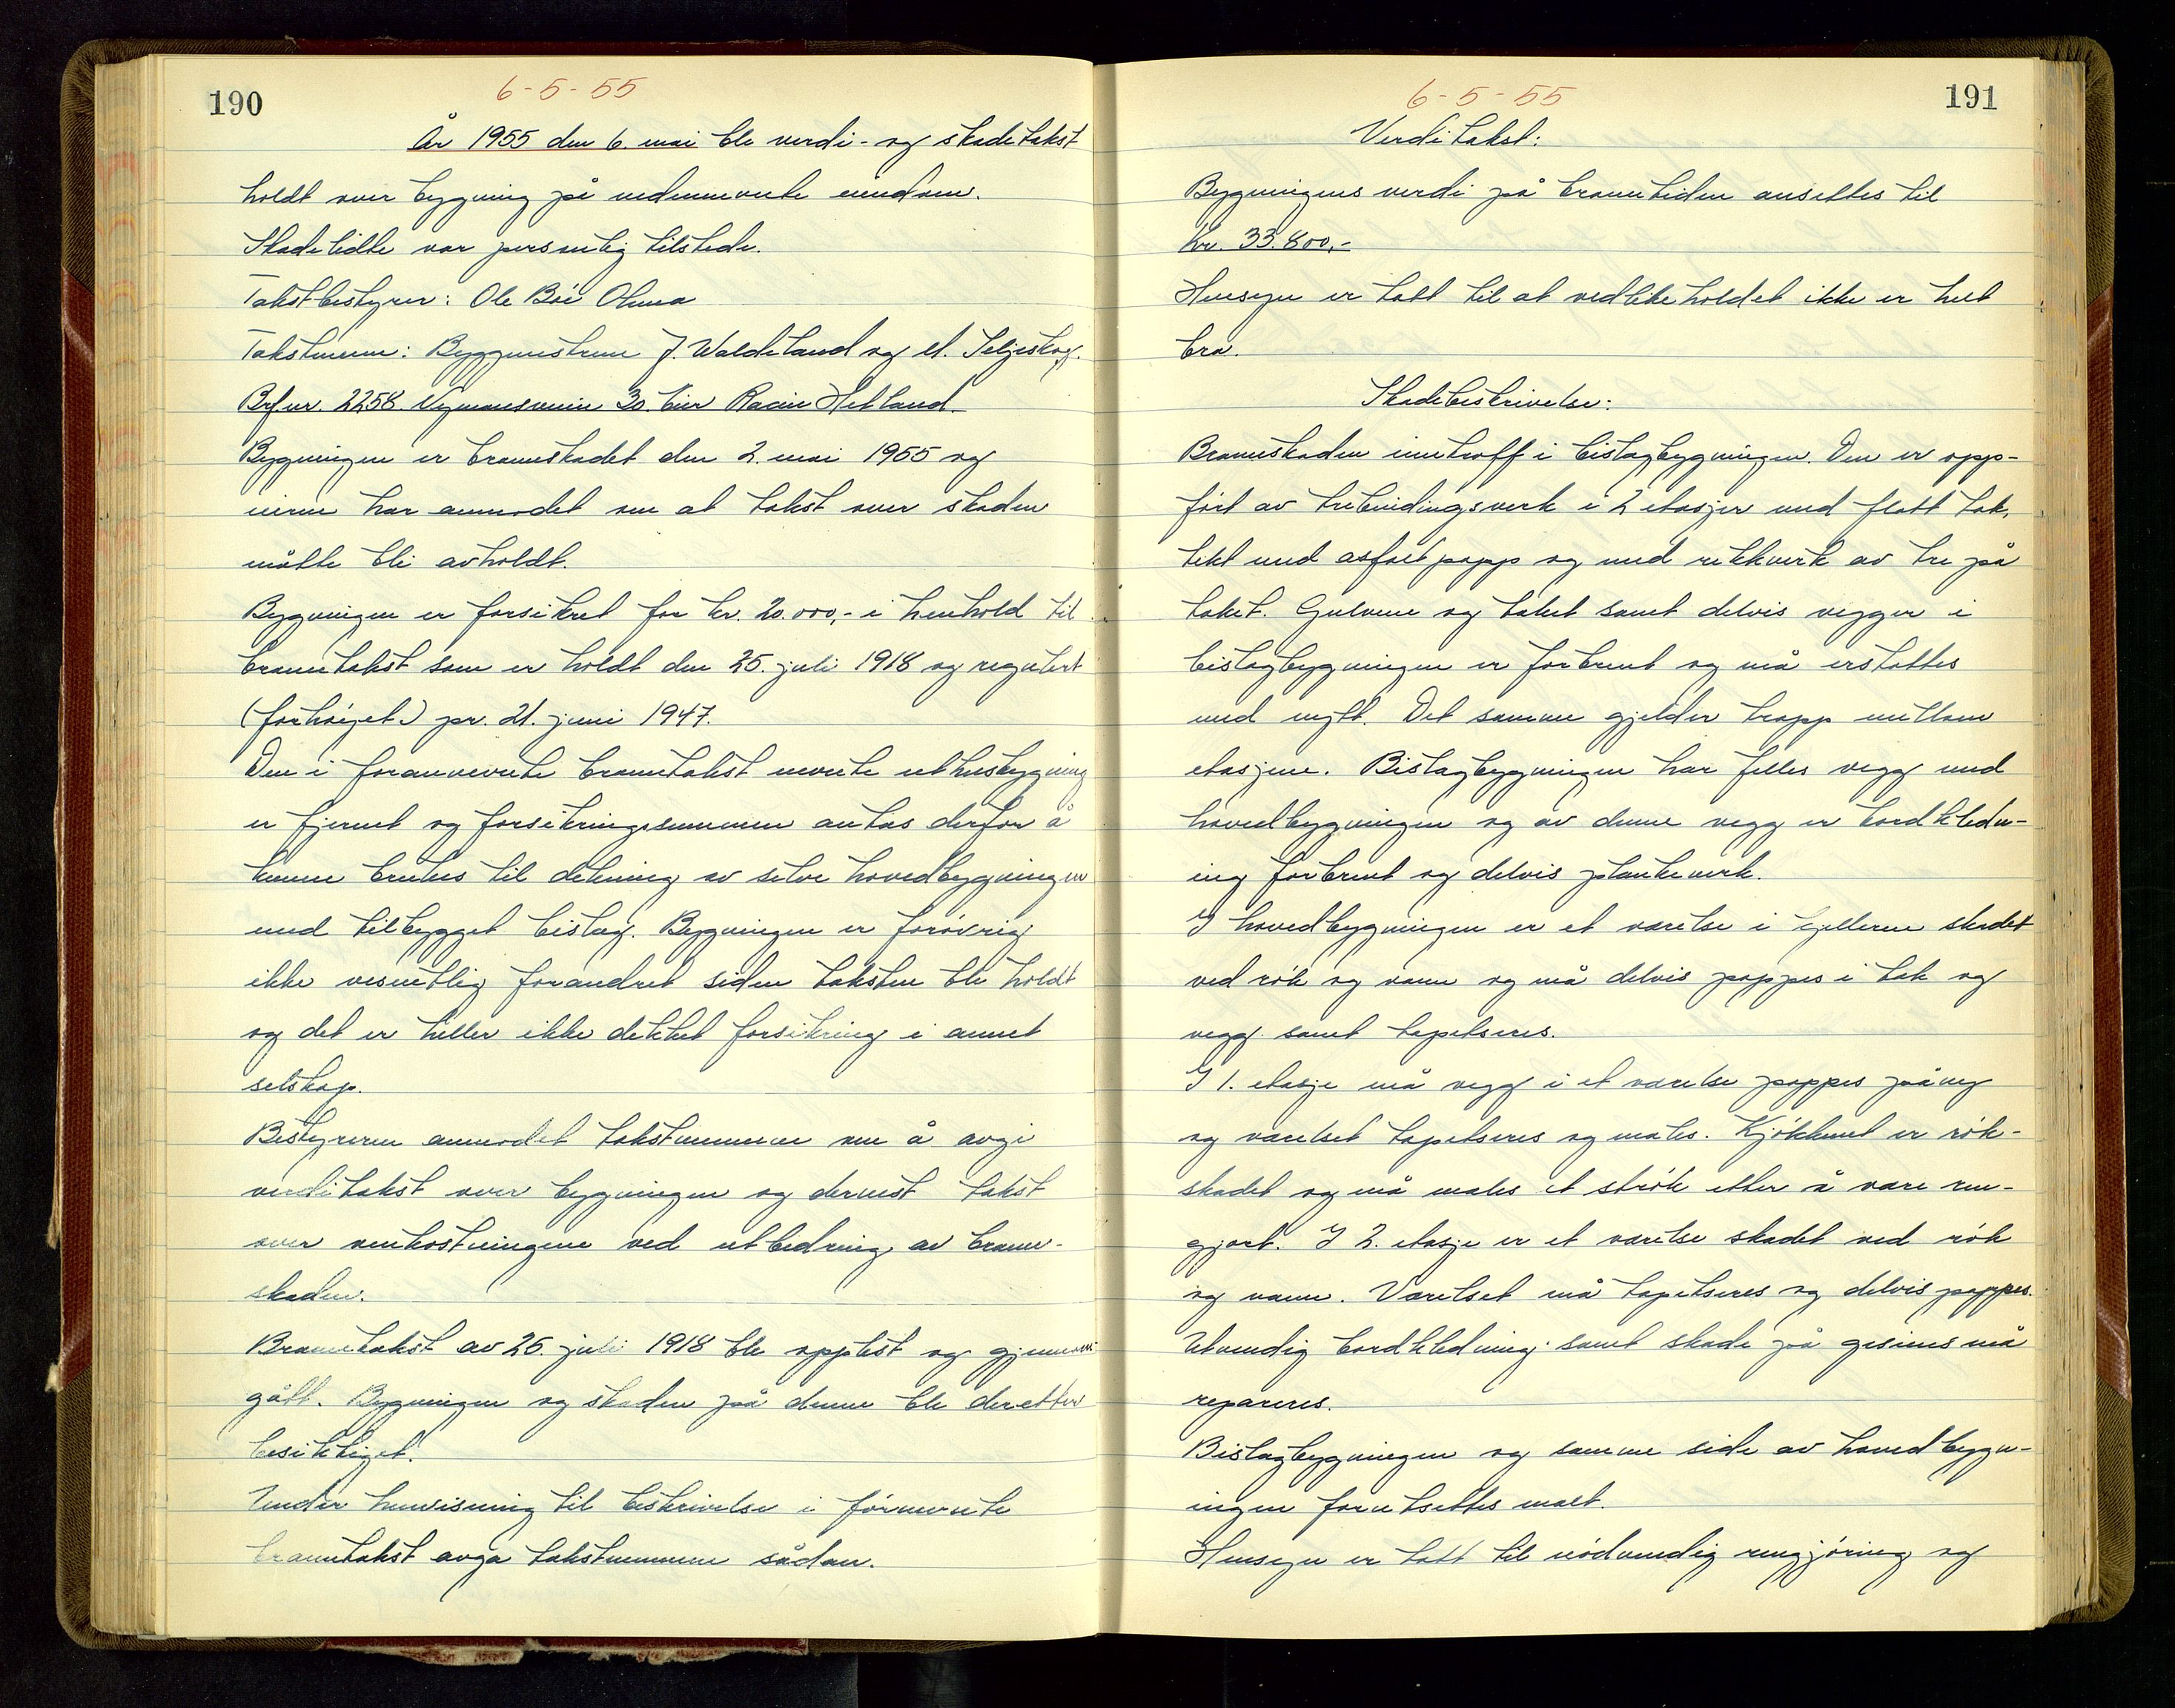 190
6-5-55
År 1955 den 6. mai ble verdi- og skadetakst
holdt over bygning på nedennevnte eiendom.
Skadelidte var personlig tilstede.
Takstbestyrer: Ole Bøe Olsen
Takstmenn: Byggmestrene J. Waldeland og
Brf nr. 2258. 30. eier Hetland
Bygningen er brannskadet den 2. mai 1955 og
eieren har anmodet om at takst over skaden
måtte bli avholdt.
Bygningen er forsikret for kr. 20.000,- i henhold til
branntakst som er holdt den 25. juli 1918 og regulert
(forhøyet) pr. 21. juni 1947.
Den i forannevnte branntakst nevnte uthusbygning
er fjernet og forsikringssummen antas derfor å
kunne brukes til dekning av selve hovedbygningen
med tilbygget bislag. Bygningen er forøvrig
ikke vesentlig forandret siden taksten ble holdt
og det er heller ikke dekket forsikring i annet
selskap.
Bestyreren anmodet takstmennene om å avgi
verditakst over bygningen og dernest takst
over omkostningene ved utbedring av brann-
skaden.
Branntakst av 25. juli 1918 ble opplest og gjennom-
gått. Bygningen og skaden på denne ble deretter
besiktiget.
Under henvisning til beskrivelse i førnevnte
branntakst avga takstmennene sådan.
191
6-5-55
Verditakst:
Bygningens verdi på branntiden ansettes til
kr. 33.800,-
Hensyn er tatt til at vedlikeholdet ikke er helt
bra.
Skadebeskrivelse:
Brannskaden inntraff i bislagbygningen. Den er opp-
ført av trebindingsverk i 2 etasjer med flatt tak,
tekt med asfaltpapp og med rekkverk av tre på
taket. Gulvene og taket samt delvis vegger i
bislagbygningen er forbrent og må erstattes
med nytt. Det samme gjelder trapp mellom
etasjene. Bislagbygningen har felles vegg med
hovedbygningen og av denne vegg er bordkledn-
ing forbrent og delvis plankeverk.
I hovedbygningen er et værelse i kjelleren skadet
ved røk og vann og må delvis pappes i tak og
vegg samt tapetseres.
I 1. etasje må vegg i et værelse pappes påny
og værelset tapetseres og males. Kjøkkenet er røk-
skadet og må males et strøk etter å være ren-
gjort. I 2. etasje er et værelse skadet ved røk
og vann. Værelset må tapetseres og delvis pappes.
Utvendig bordkledning samt skade på gesims må
repareres.
Bislagbygningen og samme side av hovedbygn-
ingen forutsettes malt.
Hensyn er tatt til nødvendig rengjøring og